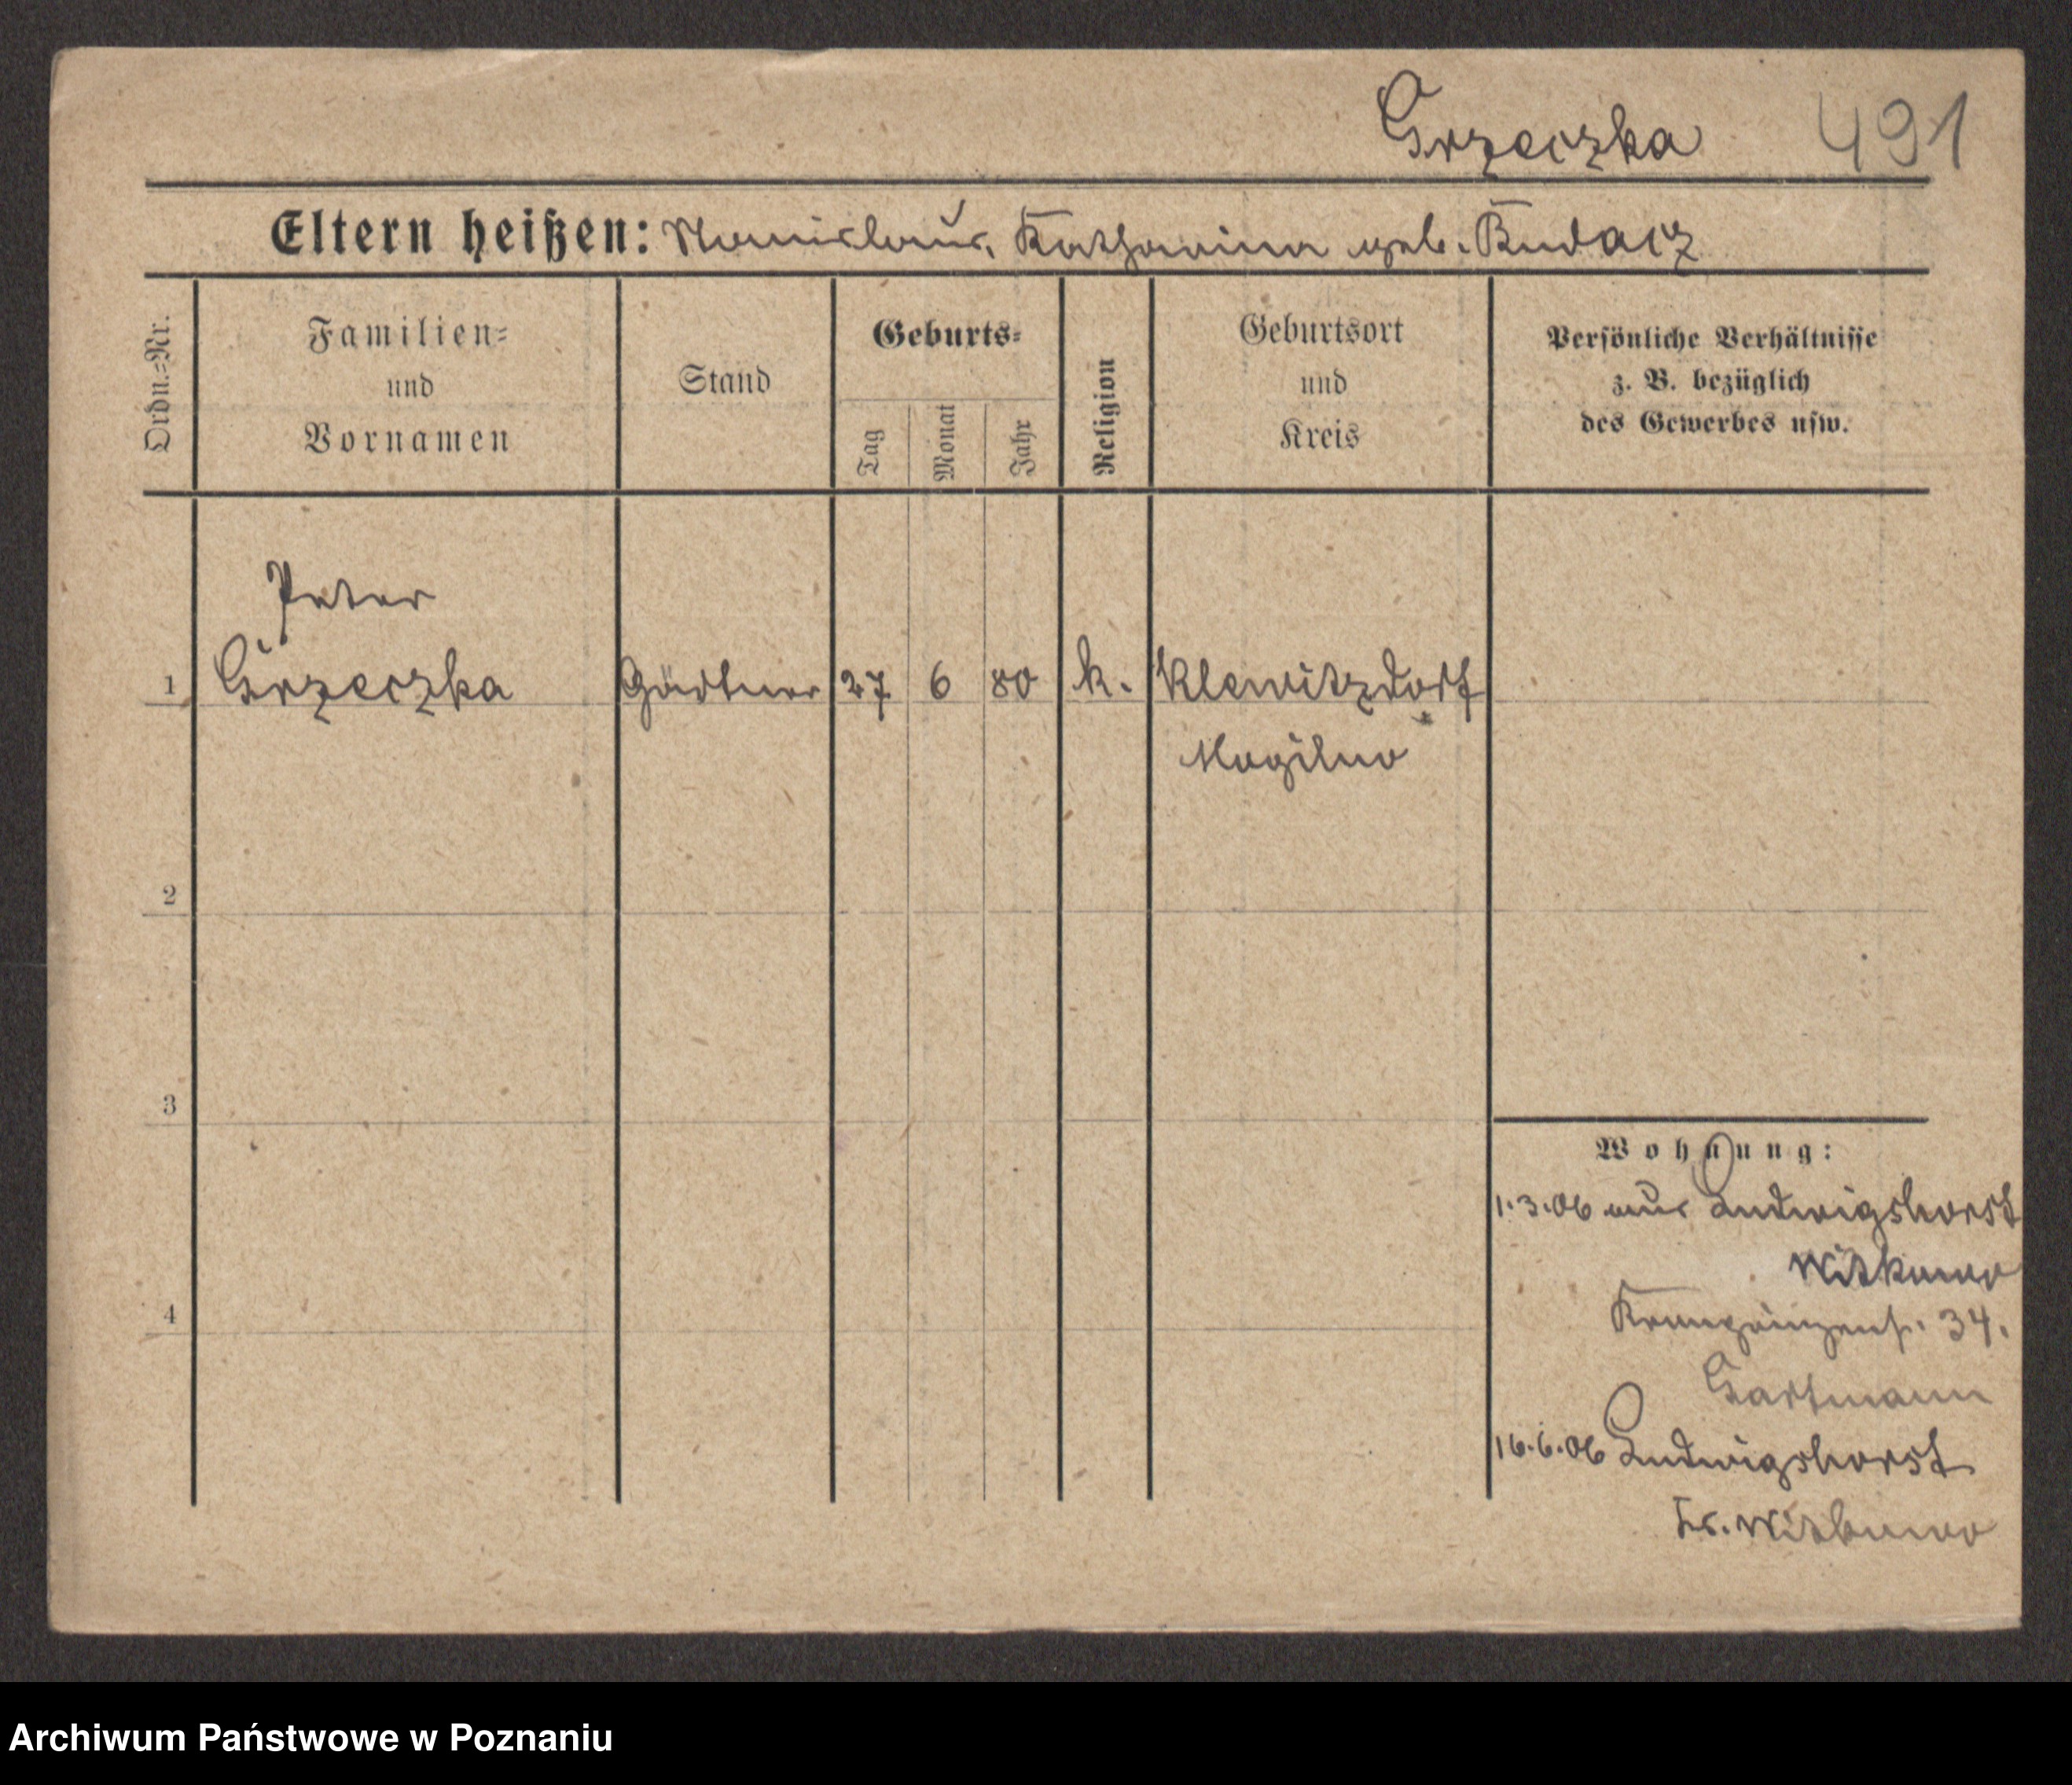 Grzeczka 491
Eltern heißen: Stanislaus, Katharina geb. Budacz
Ordn.-Nr.
Familien-
und
Vornamen
Stand
Geburts-
Tag
Monat
Jahr
Religion
Geburtsort
und
Kreis
Persönliche Verhältnisse
z. B. bezüglich
des Gewerbes usw.
Peter
1 Grzeczka Gärtner 27 6 80 k. Klewitzdorf
Mogilno
2
3
4
Wohnung:
1.3.06 aus Ludwigshorst
Witkowo
Kronprinzenstr. 34.
Hartmann
16.6.06 Ludwigshorst
Kr. Witkowo
Archiwum Państwowe w Poznaniu